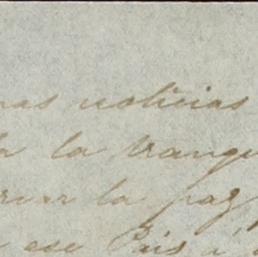 nas noticias
la tranqu
rvar la paz,
ese Pais a